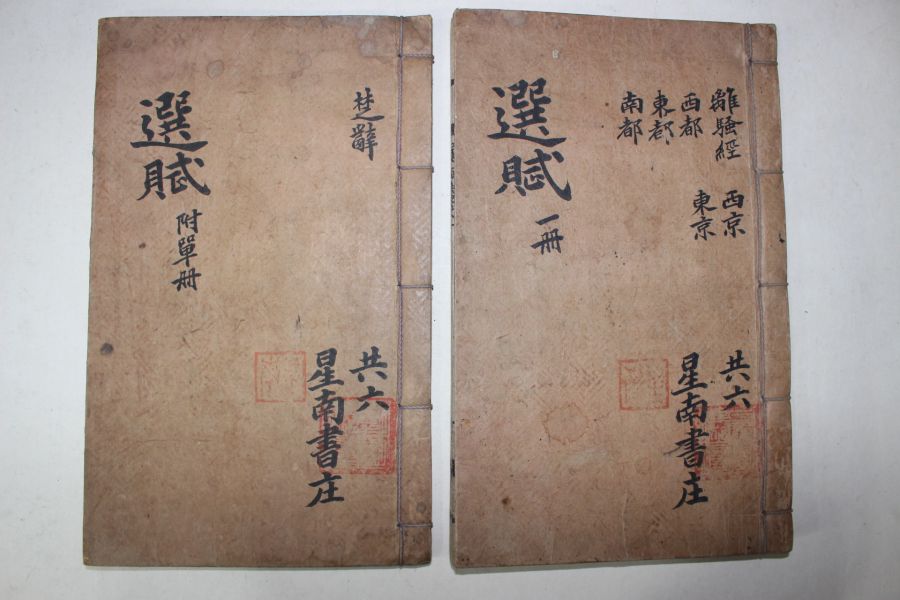 楚辭
選賦
附單册
共六
星南書庄
離騷經
西都
東都
南都
西京
東京
選賦
一册
共六
星南書庄